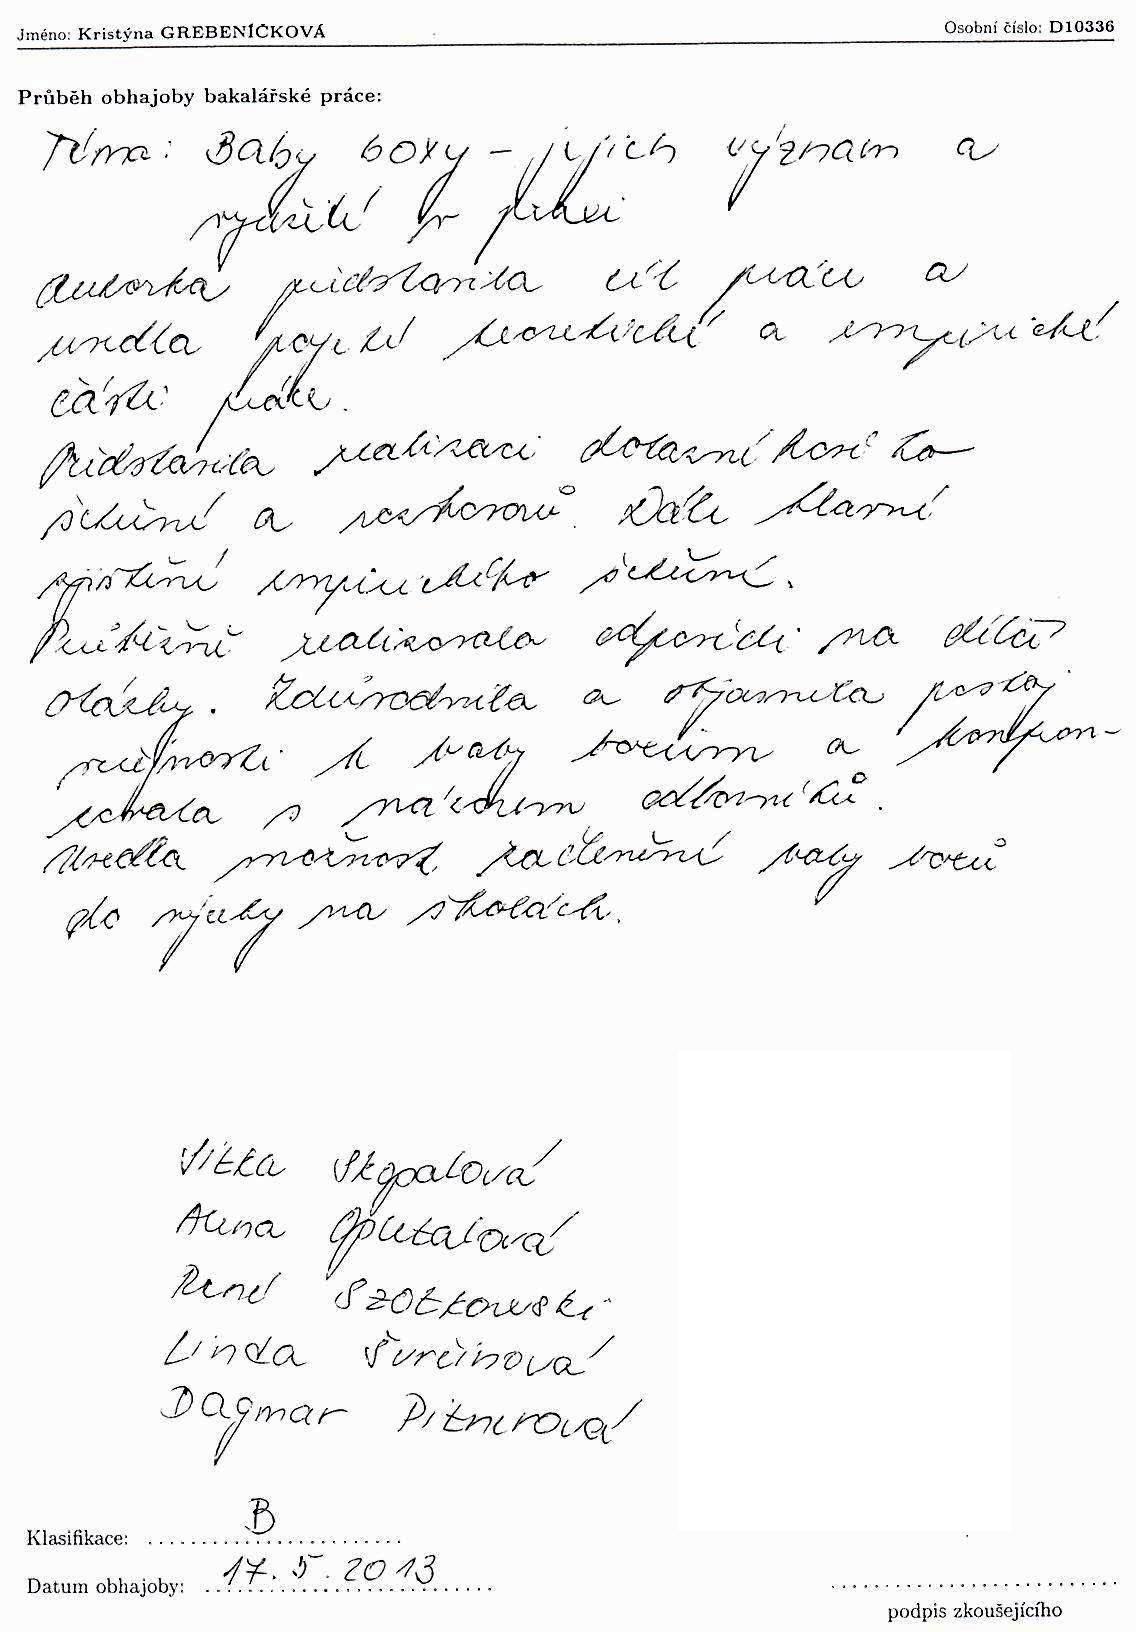 Jméno: Kristýna GREBENÍČKOVÁ Osobní číslo: D10336
Průběh obhajoby bakalářské práce:
Téma: Baby boxy – jejich význam a
využití v praxi
Autorka představila cíl práce a
uvedla pojetí teoretické a empirické
části práce.
Představila realizaci dotazníkového
šetření a rozhovorů. Dále hlavní
zjištění empirického šetření.
Průběžně realizovala odpovědi na dílčí
otázky. Zdůvodnila a objasnila postoj
veřejnosti k baby boxům a konfron-
tovala s názorem odborníků.
Uvedla možnost začlenění baby boxů
do výuky na školách.
Jitka Skopalová
Alena Opletalová
René Szotkowski
Linda Švrčinová
Dagmar Pitnerová
Klasifikace: B
Datum obhajoby: 17. 5. 2013
podpis zkoušejícího